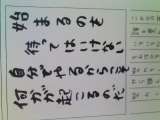 始まるのを
待ってはいけない
自分でやるからこそ
何かが起こるのだ